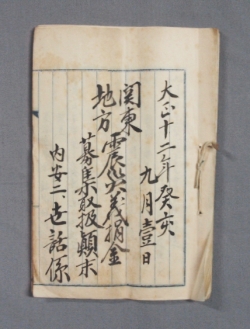 大正十二年癸亥
九月壹日
関東
地方
震災義捐金
募集取扱顛末
内安二、世話係